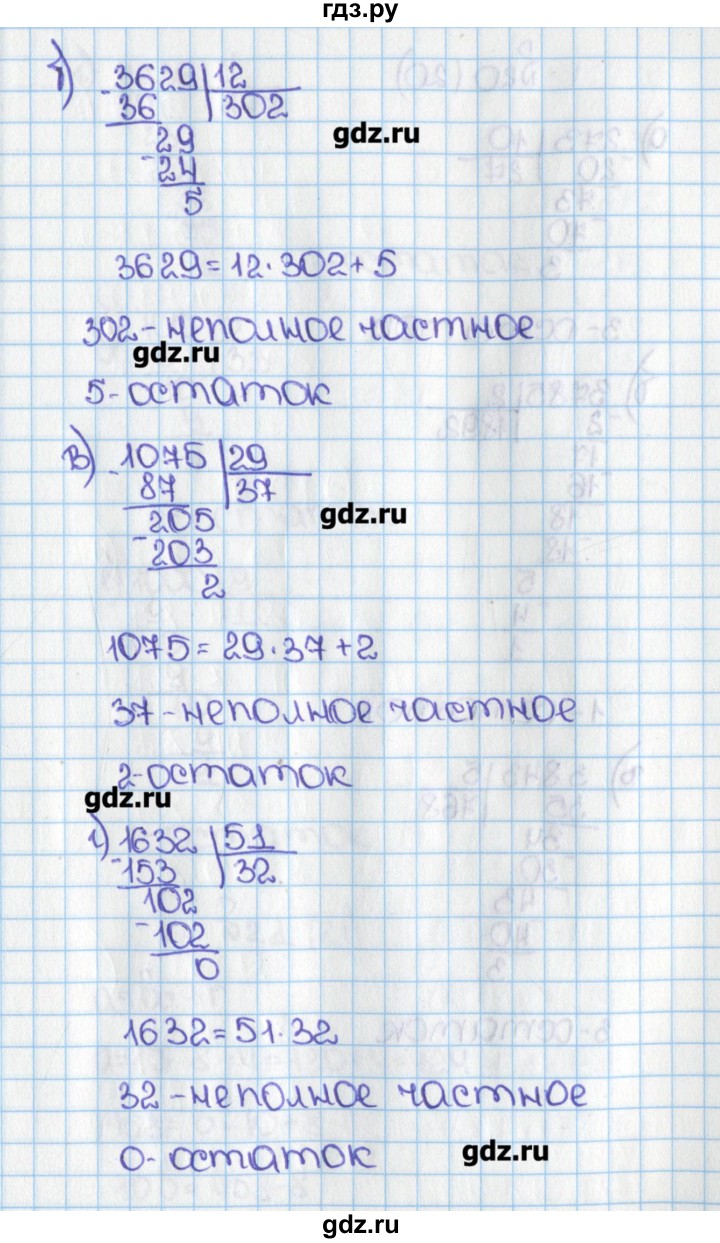 гдз.ру
б) 3629 | 12
- 36 | 302
29
gdz.ru
- 24
5
3629 = 12 · 302 + 5
302 - неполное частное
gdz.ru
5 - остаток
в) - 1075 | 29
87 | 37
205
gdz.ru
- 203
2
1075 = 29 · 37 + 2
37 - неполное частное
2 - остаток
gdz.ru
г) 1632 | 51
- 153 | 32
102
- 102
0
1632 = 51 · 32
32 - неполное частное
0 - остаток
gdz.ru
gdz.ru